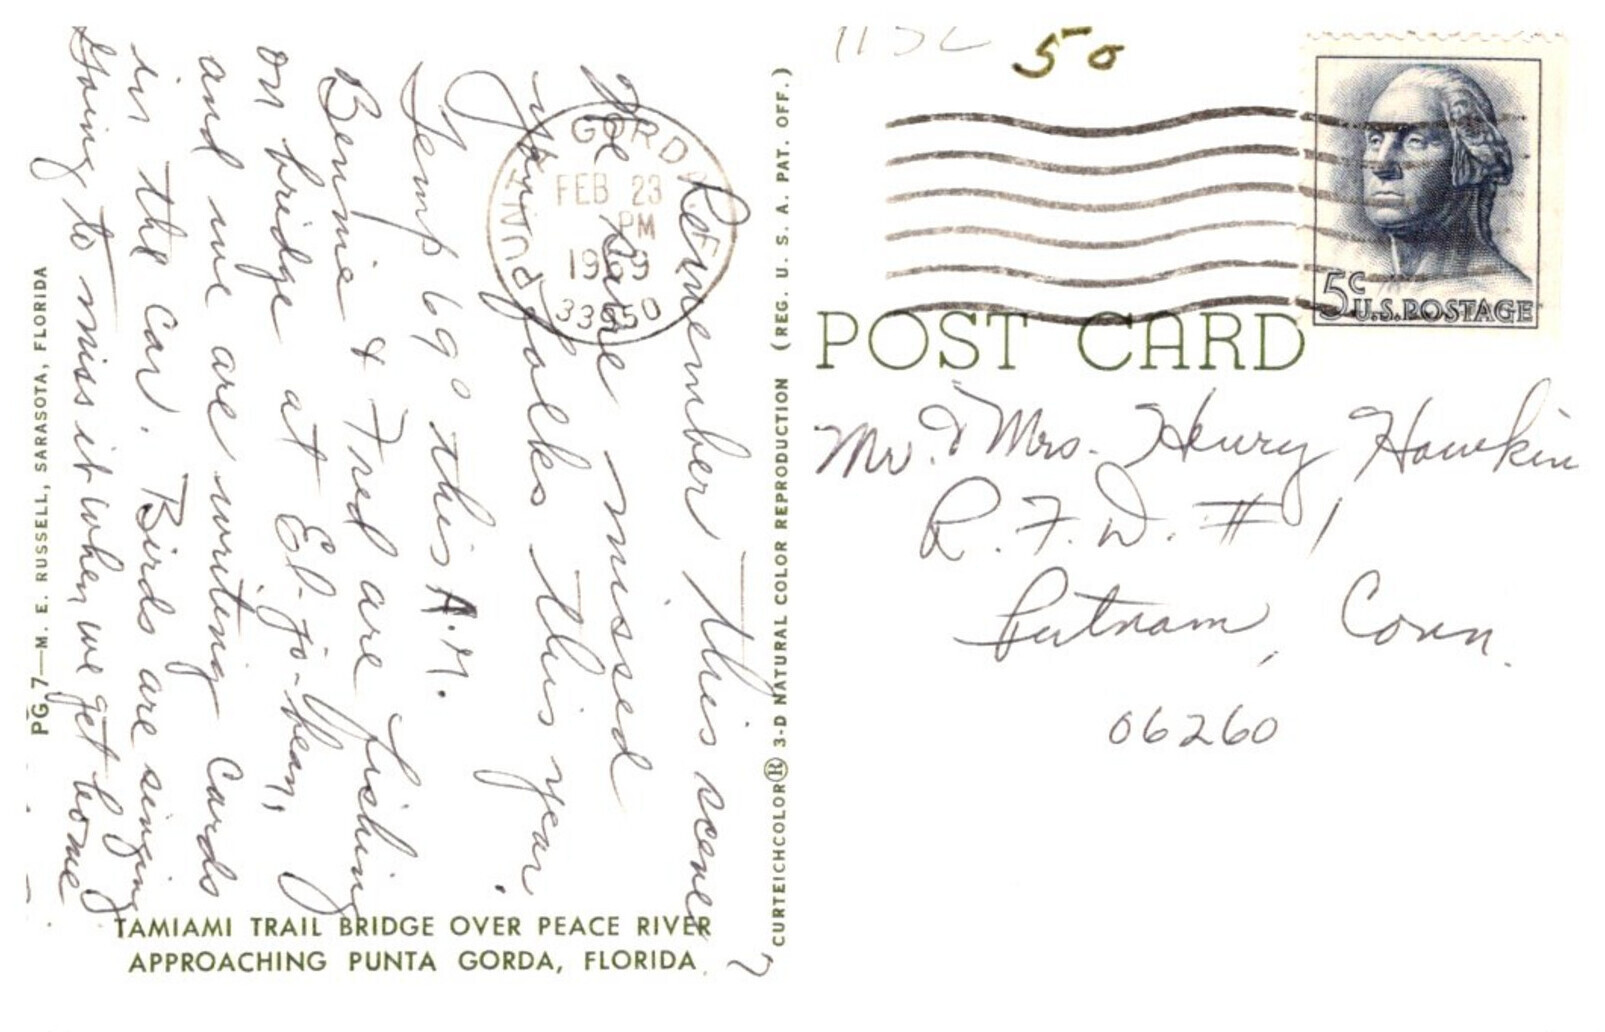 Remember this scene?
We have missed
you folks this year.
Temp 69° this A.M.
Bennie & Fred are fishing
on bridge at El-jo-bean,
and we are writing cards
in the car. Birds are singing
Going to miss it when we get home
TAMIAMI TRAIL BRIDGE OVER PEACE RIVER
APPROACHING PUNTA GORDA, FLORIDA
PG 7—M. E. RUSSELL, SARASOTA, FLORIDA
CURTEICHCOLOR® 3-D NATURAL COLOR REPRODUCTION (REG. U. S. A. PAT. OFF.)
PUNTA GORDA
FEB 23
PM
33950
50
5c
U.S. POSTAGE
POST CARD
Mr. & Mrs. Henry Hawkin
R.F.D. #1
Putnam, Conn.
06260